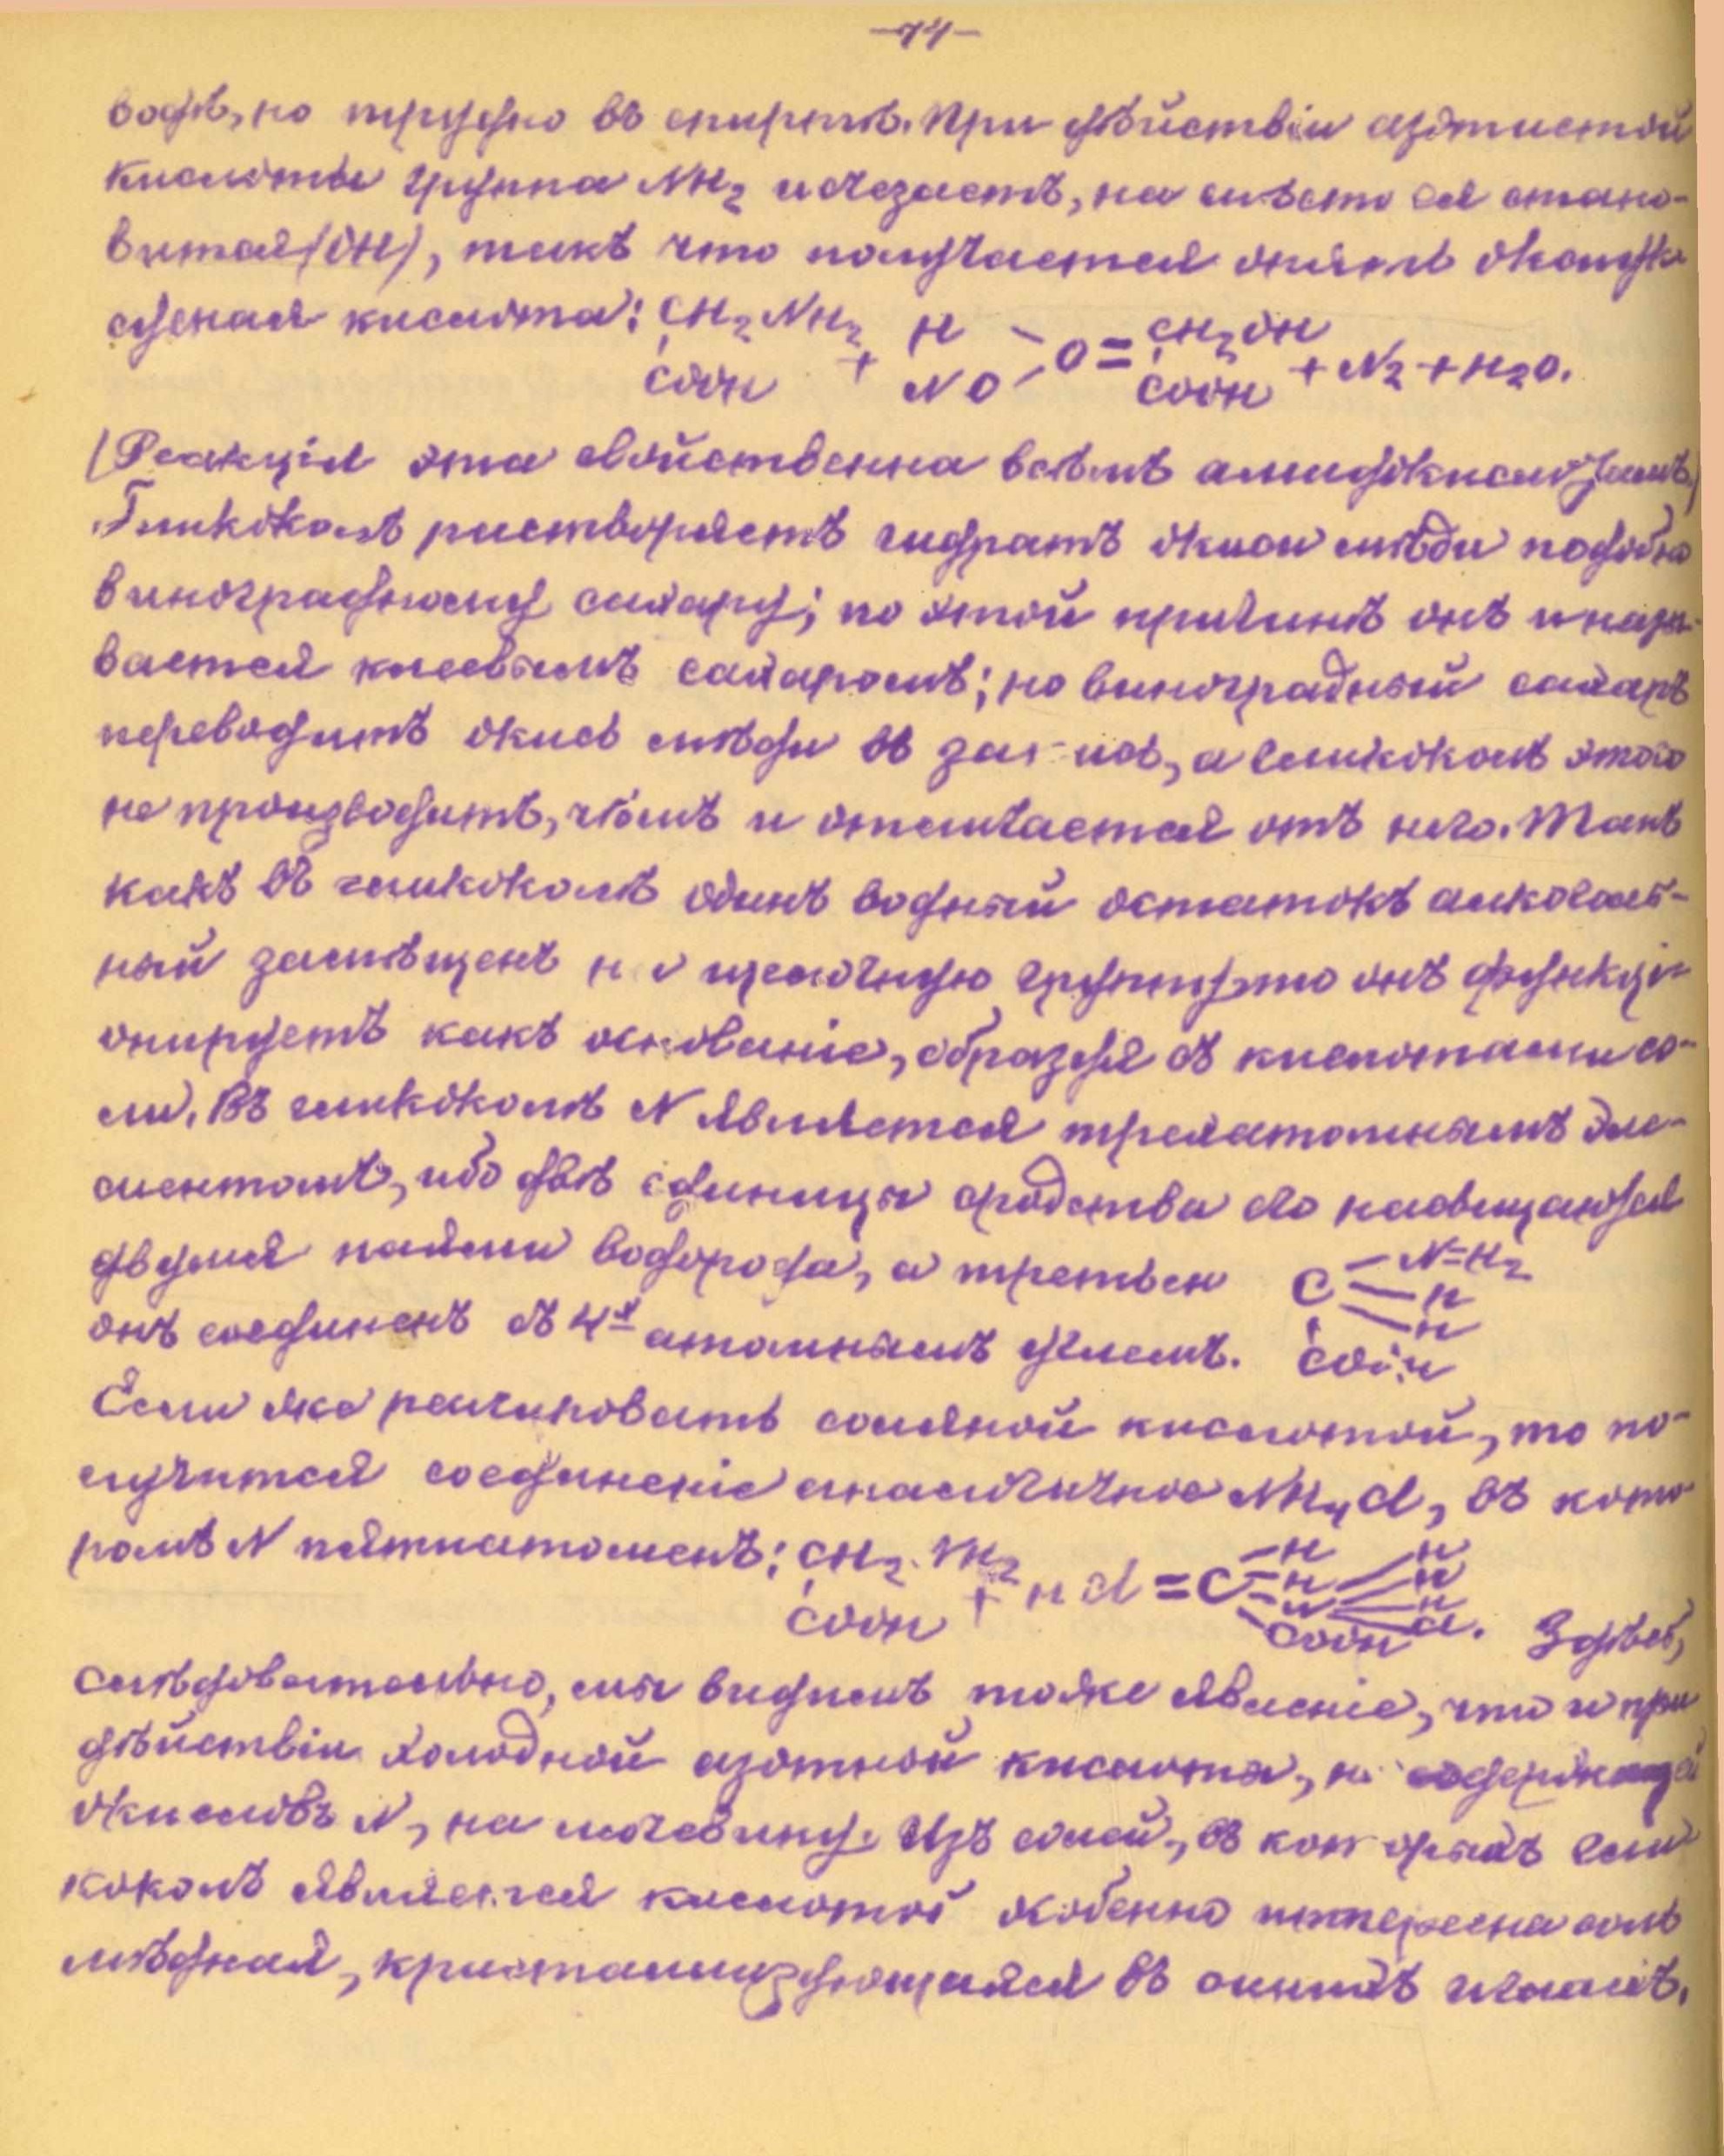 —74—
водѣ, но трудно въ спиртѣ. При дѣйствіи азотистой
кислоты группа NH₂ исчезаетъ, на мѣсто ея стано-
вится (ОН), такъ что получается опять оксиук-
сусная кислота: CH₂NH₂ + H – O = CH₂OH + N₂ + H₂O.
COOH NO COOH
(Реакція эта свойственна всѣмъ амидокислотамъ)
Гликоколъ растворяетъ гидратъ окиси мѣди подобно
виноградному сахару; по этой причинѣ онъ и назы-
вается клеевымъ сахаромъ; но виноградный сахаръ
переводитъ окись мѣди въ закись, а гликоколъ этого
не производитъ, чѣмъ и отличается отъ него. Такъ
какъ въ гликоколѣ одинъ водный остатокъ алкоголь-
ный замѣщенъ на щелочную группу, то онъ функці-
онируетъ какъ основаніе, образуя съ кислотами со-
ли. Въ гликоколѣ N является трехатомнымъ эле-
ментомъ, ибо двѣ единицы сродства его насыщаются
двумя паями водорода, а третьей C – N=H₂
– H
– H
онъ соединенъ съ 4-х атомнымъ углемъ. COOH
Если же реагировать соляной кислотой, то по-
лучится соединеніе аналогичное NH₄Cl, въ кото-
ромъ N пятиатоменъ: CH₂NH₂ + HCl = C –H –H –N H H H Cl.
COOH COOH Здѣсь,
слѣдовательно, мы видимъ тоже явленіе, что и при
дѣйствіи холодной азотной кислоты, не содержащей
окисловъ N, на мочевину. Изъ солей, въ которыхъ гли
коколъ является кислотой особенно интересна соль
мѣдная, кристаллизующаяся въ иглахъ.